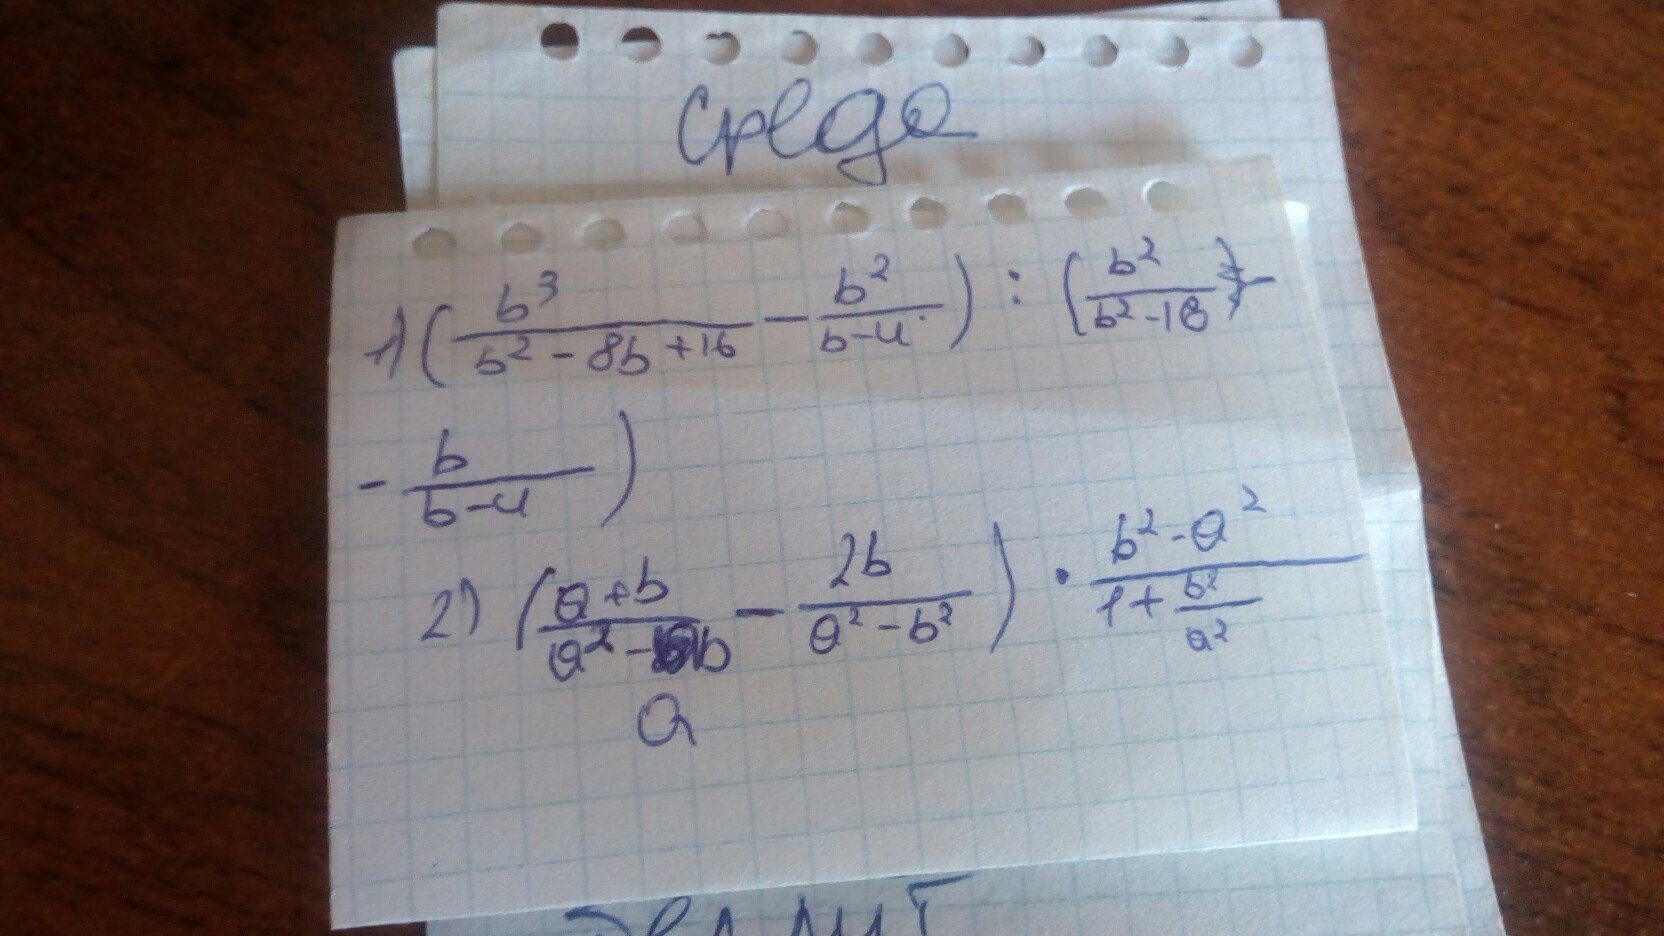 среда
1) ( b³/(b² - 8b + 16) - b²/(b - 4) ) : ( b²/(b² - 16) -
- b/(b - 4) )
2) ( (a + b)/(a² - ab) - 2b/(a² - b²) ) · (b² - a²)/(1 + b²/a²)
a